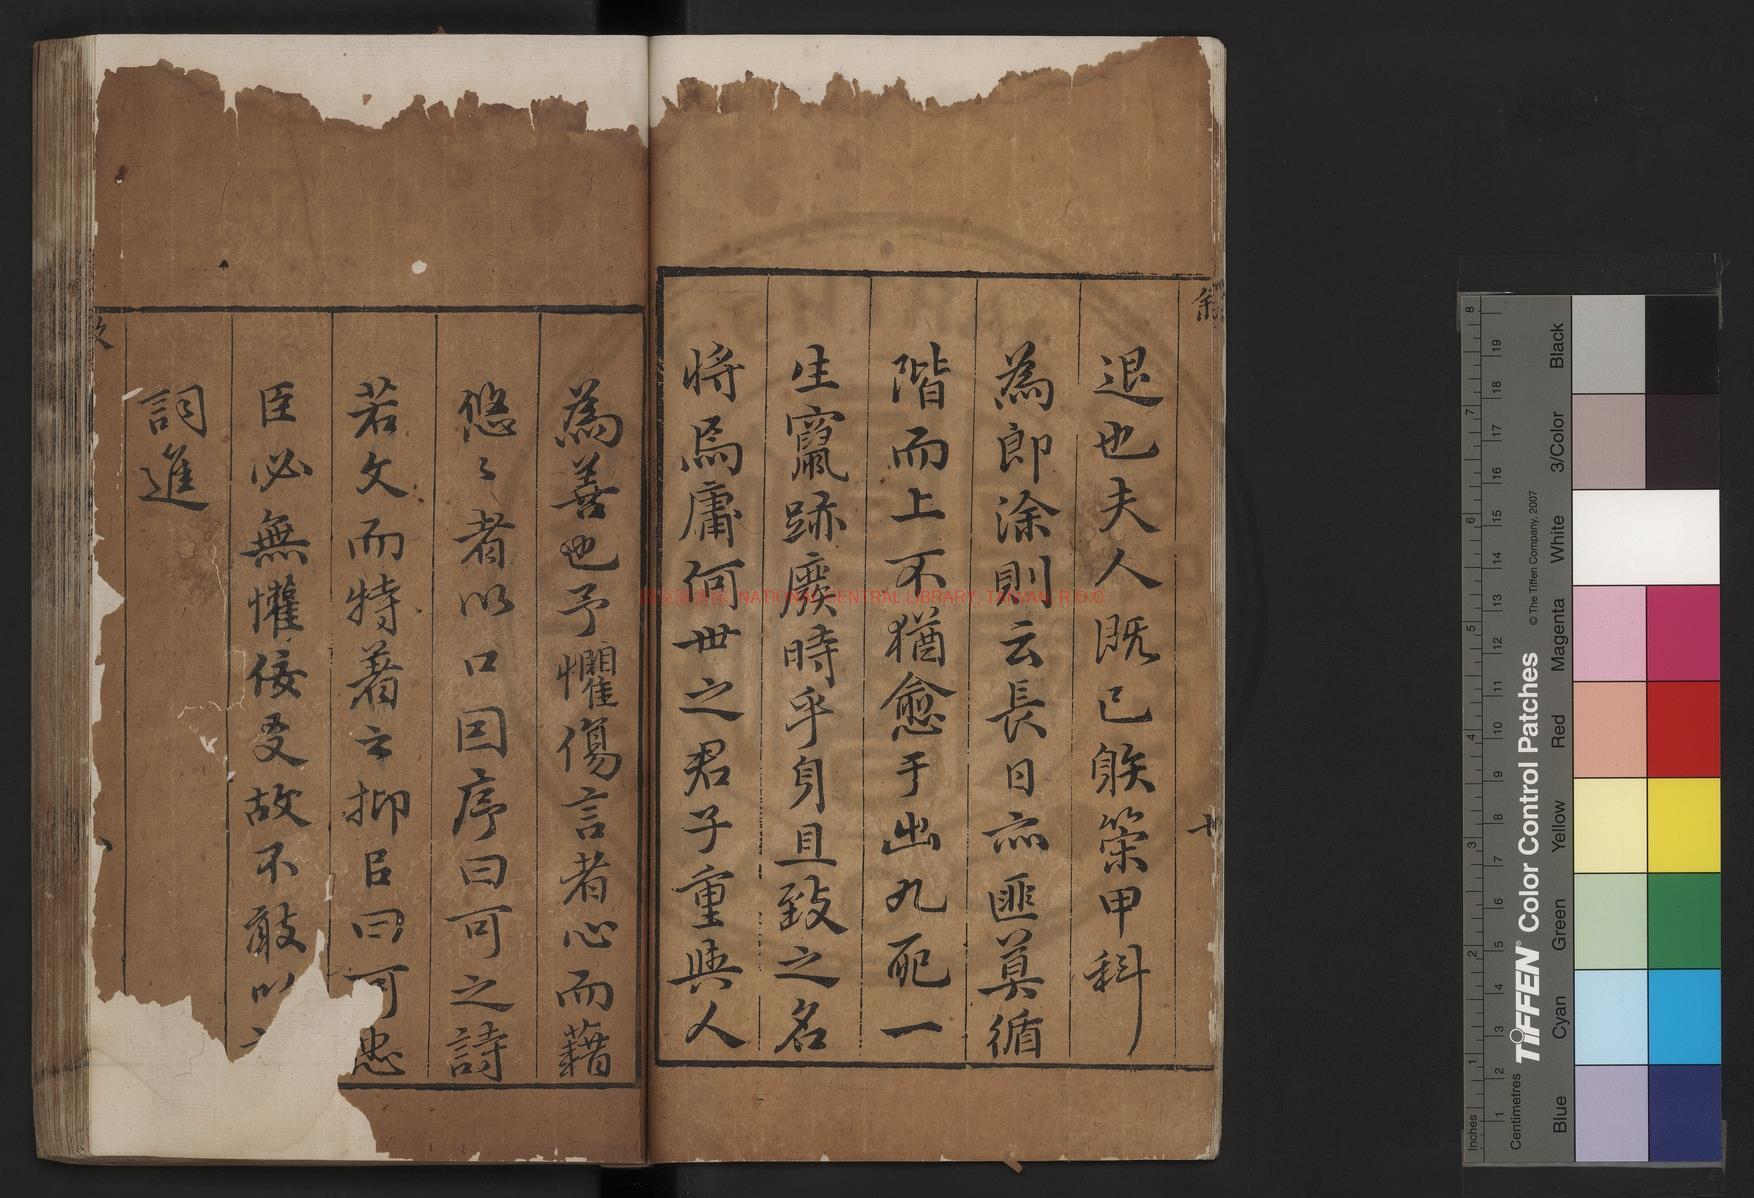 退也夫人既已躲策甲科
為郎涂則云長日亦匪莫循
階而上不猶愈于出九死一
生竄跡廢時乎身且致之名
將焉庸何世之君子重與人
為善也予懼傷言者心而藉
悠〻者以口因序曰可之詩
若文而特著云抑臣曰可忠
臣必無懽佞叟故不敢以
詞進
國家圖書館, NATIONAL CENTRAL LIBRARY, TAIWAN, R.O.C
Inches
1 2 3 4 5 6 7 8
Centimetres
1 2 3 4 5 6 7 8 9 10 11 12 13 14 15 16 17 18 19
TIFFEN® Color Control Patches
© The Tiffen Company, 2007
Blue
Cyan
Green
Yellow
Red
Magenta
White
3/Color
Black